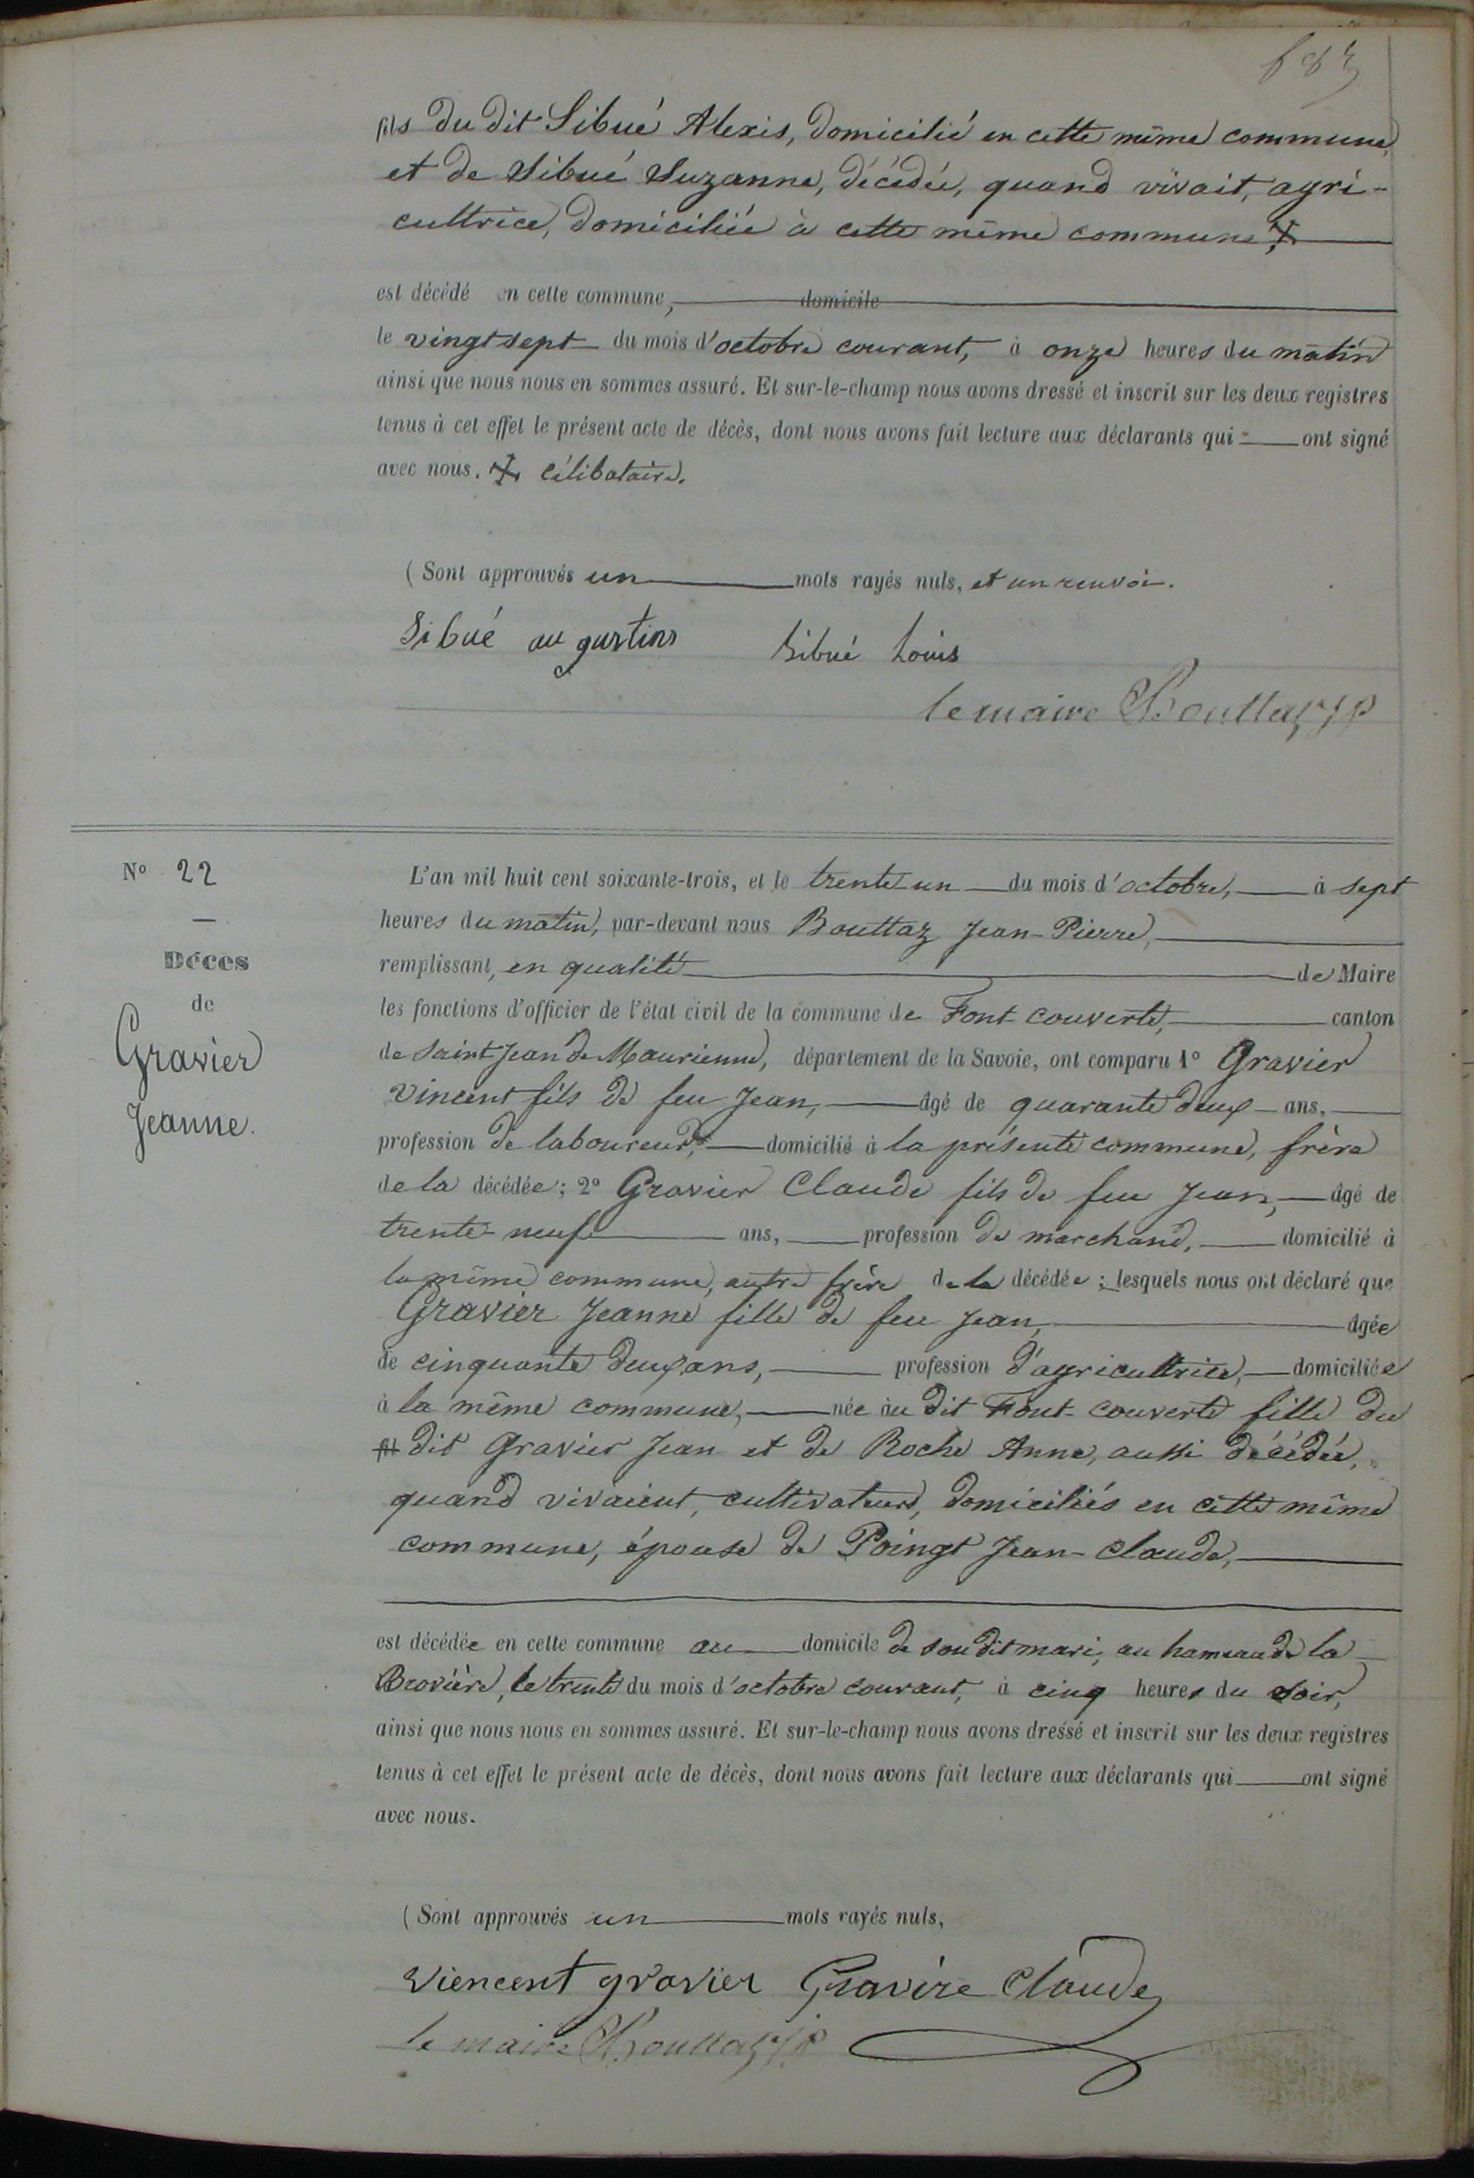 fils du dit Sibué Alexis, domicilié en cette même commune,
et de Sibué Suzanne, décédée, quand vivait, agri-
cultrice, domiciliée à cette même commune,
est décédé en cette commune, domicile
le vingt sept du mois d'octobre courant, à onze heures du matin
ainsi que nous nous en sommes assuré. Et sur-le-champ nous avons dressé et inscrit sur les deux registres
tenus à cet effet le présent acte de décès, dont nous avons fait lecture aux déclarants qui ont signé
avec nous. célibataire.
(Sont approuvés un mots rayés nuls, et un renvoi.
Sibué augustins Sibué Louis
le maire Bouttaz JP
N° 22
Décès
de
Gravier
Jeanne.
L'an mil huit cent soixante-trois, et le trente un du mois d'octobre, à sept
heures du matin, par-devant nous Bouttaz Jean-Pierre,
remplissant, en qualité de Maire
les fonctions d'officier de l'état civil de la commune de Font couverte, canton
de Saint Jean de Maurienne, département de la Savoie, ont comparu 1° Gravier
vincent fils de feu Jean, âgé de quarante deux ans,
profession de laboureur, domicilié à la présente commune, frère
de la décédée; 2° Gravier Claude fils de feu Jean, âgé de
trente neuf ans, profession de marchand, domicilié à
la même commune, autre frère de la décédée; lesquels nous ont déclaré que
Gravier Jeanne fille de feu Jean, âgée
de cinquante deux ans, profession d'agricultrice, domiciliée
à la même commune, née au dit Font-couverte fille du
dit Gravier Jean et de Roche Anne, aussi décédée,
quand vivaient, cultivateurs, domiciliés en cette même
commune, épouse de Poingt Jean-Claude,
est décédée en cette commune au domicile de son dit mari, au hameau de la
Brovière, le trente du mois d'octobre courant, à cinq heures du soir,
ainsi que nous nous en sommes assuré. Et sur-le-champ nous avons dressé et inscrit sur les deux registres
tenus à cet effet le présent acte de décès, dont nous avons fait lecture aux déclarants qui ont signé
avec nous.
(Sont approuvés un mots rayés nuls,
viencent gravier Gravire Claude
le maire Bouttaz JP